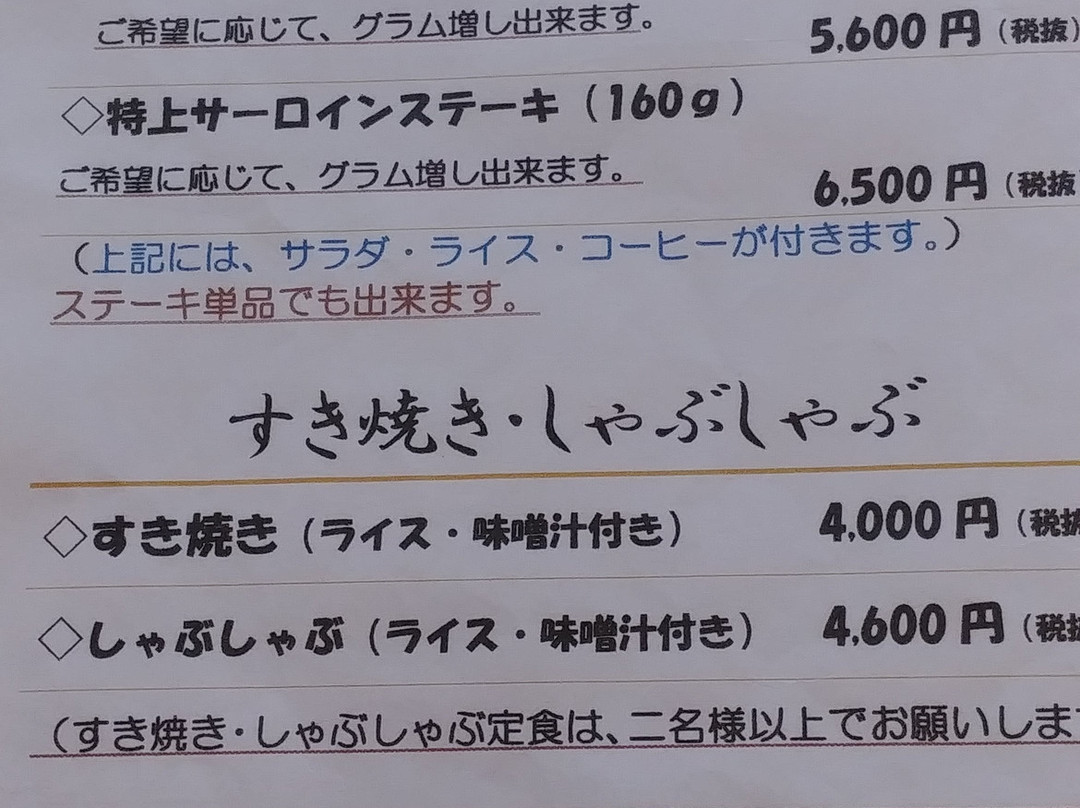 ご希望に応じて、グラム増し出来ます。
5,600円(税抜)
◇特上サーロインステーキ(160g)
ご希望に応じて、グラム増し出来ます。
6,500円(税抜
(上記には、サラダ・ライス・コーヒーが付きます。)
ステーキ単品でも出来ます。
すき焼き・しゃぶしゃぶ
◇すき焼き(ライス・味噌汁付き) 4,000円(税抜
◇しゃぶしゃぶ(ライス・味噌汁付き) 4,600円(税抜
(すき焼き・しゃぶしゃぶ定食は、二名様以上でお願いしま